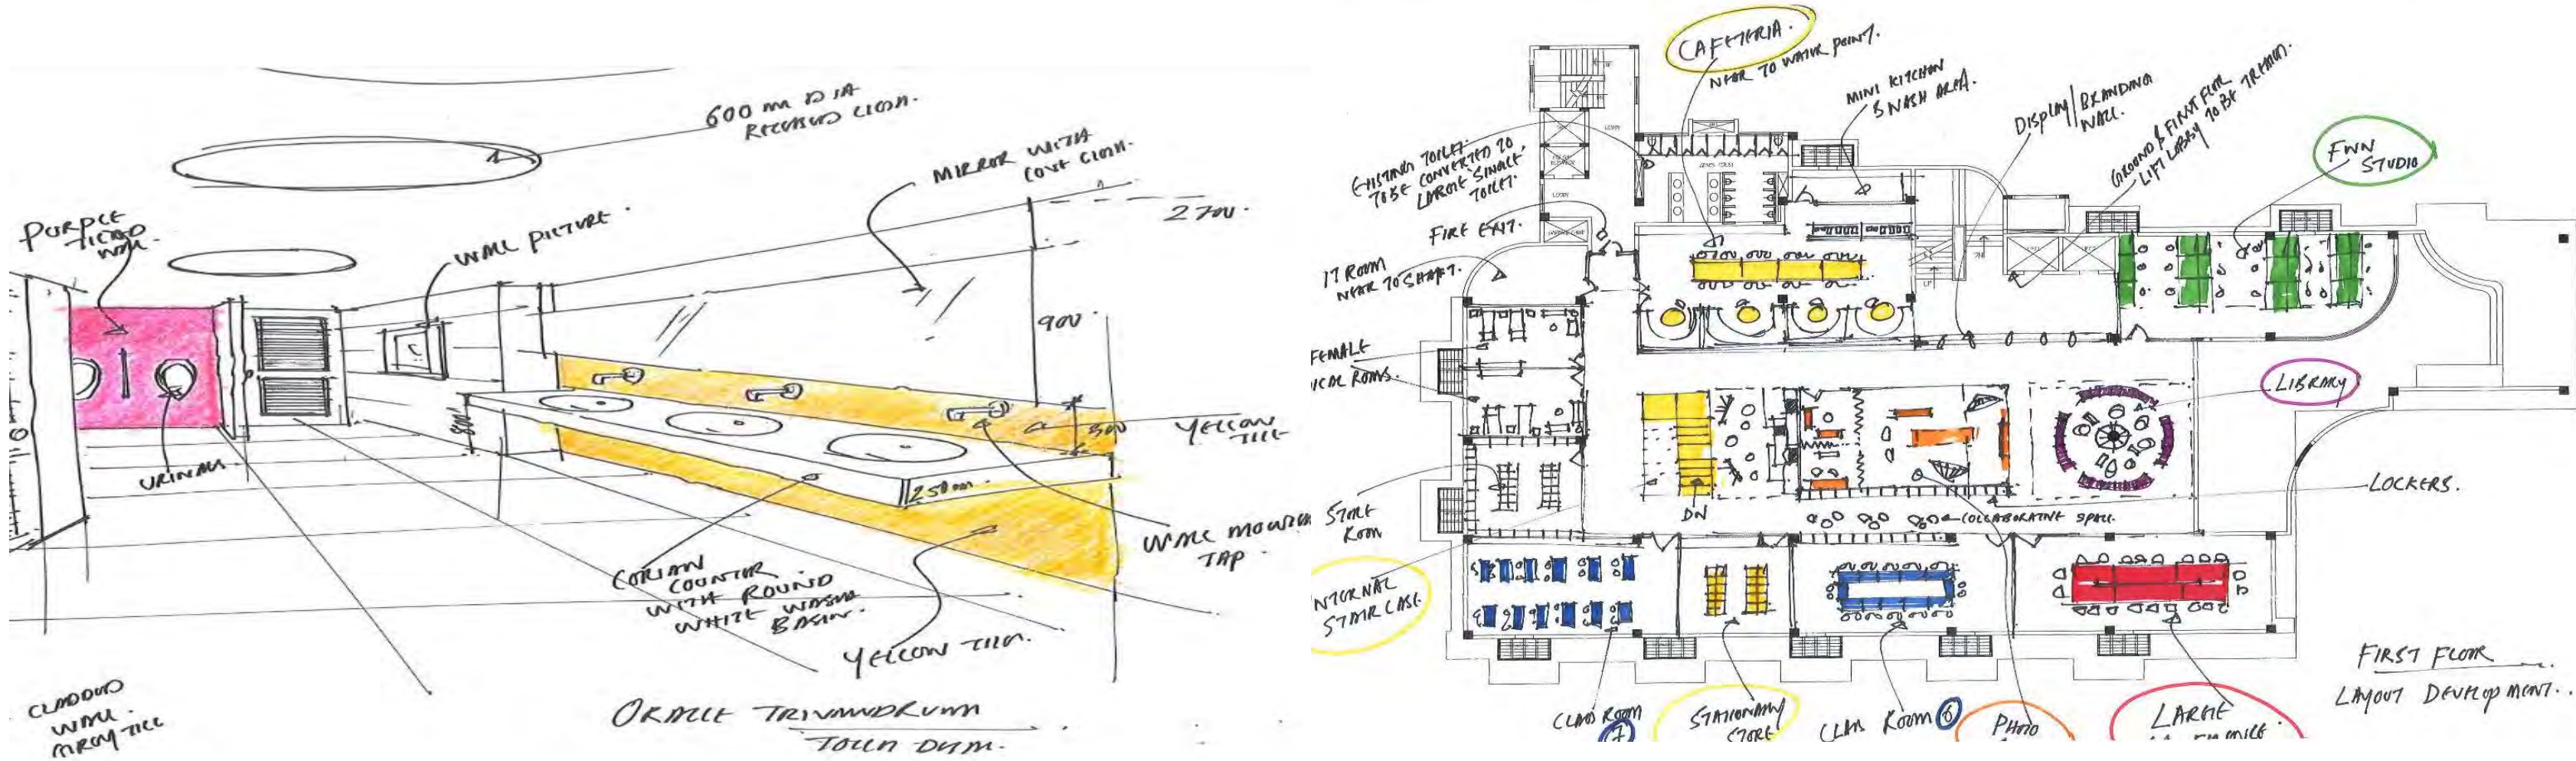 600 mm DIA
RECESSED
MIRROR WITH
COVE
2700.
PURPLE
TILED
WALL.
WALL PICTURE.
900.
800
300
YELLOW
TILE
URINALS
250mm
WALL MOUNTED
TAP.
CORIAN
COUNTER
WITH ROUND
WHITE WASH
BASIN.
YELLOW TILE.
CLADDED
WALL.
GREY TILE
ORACLE TRIVANDRUM
CAFETERIA.
NEAR TO WATER POINT.
MINI KITCHEN
& WASH AREA.
DISPLAY/BRANDING
WALL.
GROUND & FIRST FLOOR
LIFT LOBBY TO BE TREATED.
STUDIO
EXISTING TOILET.
TO BE CONVERTED TO
LARGE SINGLE
TOILET.
LOBBY
LOBBY
FIRE EXIT.
IT ROOM
NEAR TO SHAFT.
UP
FEMALE
ICAL ROOMS.
LIBRARY
LOCKERS.
STORE
ROOM
DN
COLLABORATIVE SPACE.
NTERNAL
STAIR CASE.
CLASS ROOM
7
STATIONARY
STORE
CLASS ROOM 6
PHOTO
LARGE
FIRST FLOOR
LAYOUT DEVELOPMENT.